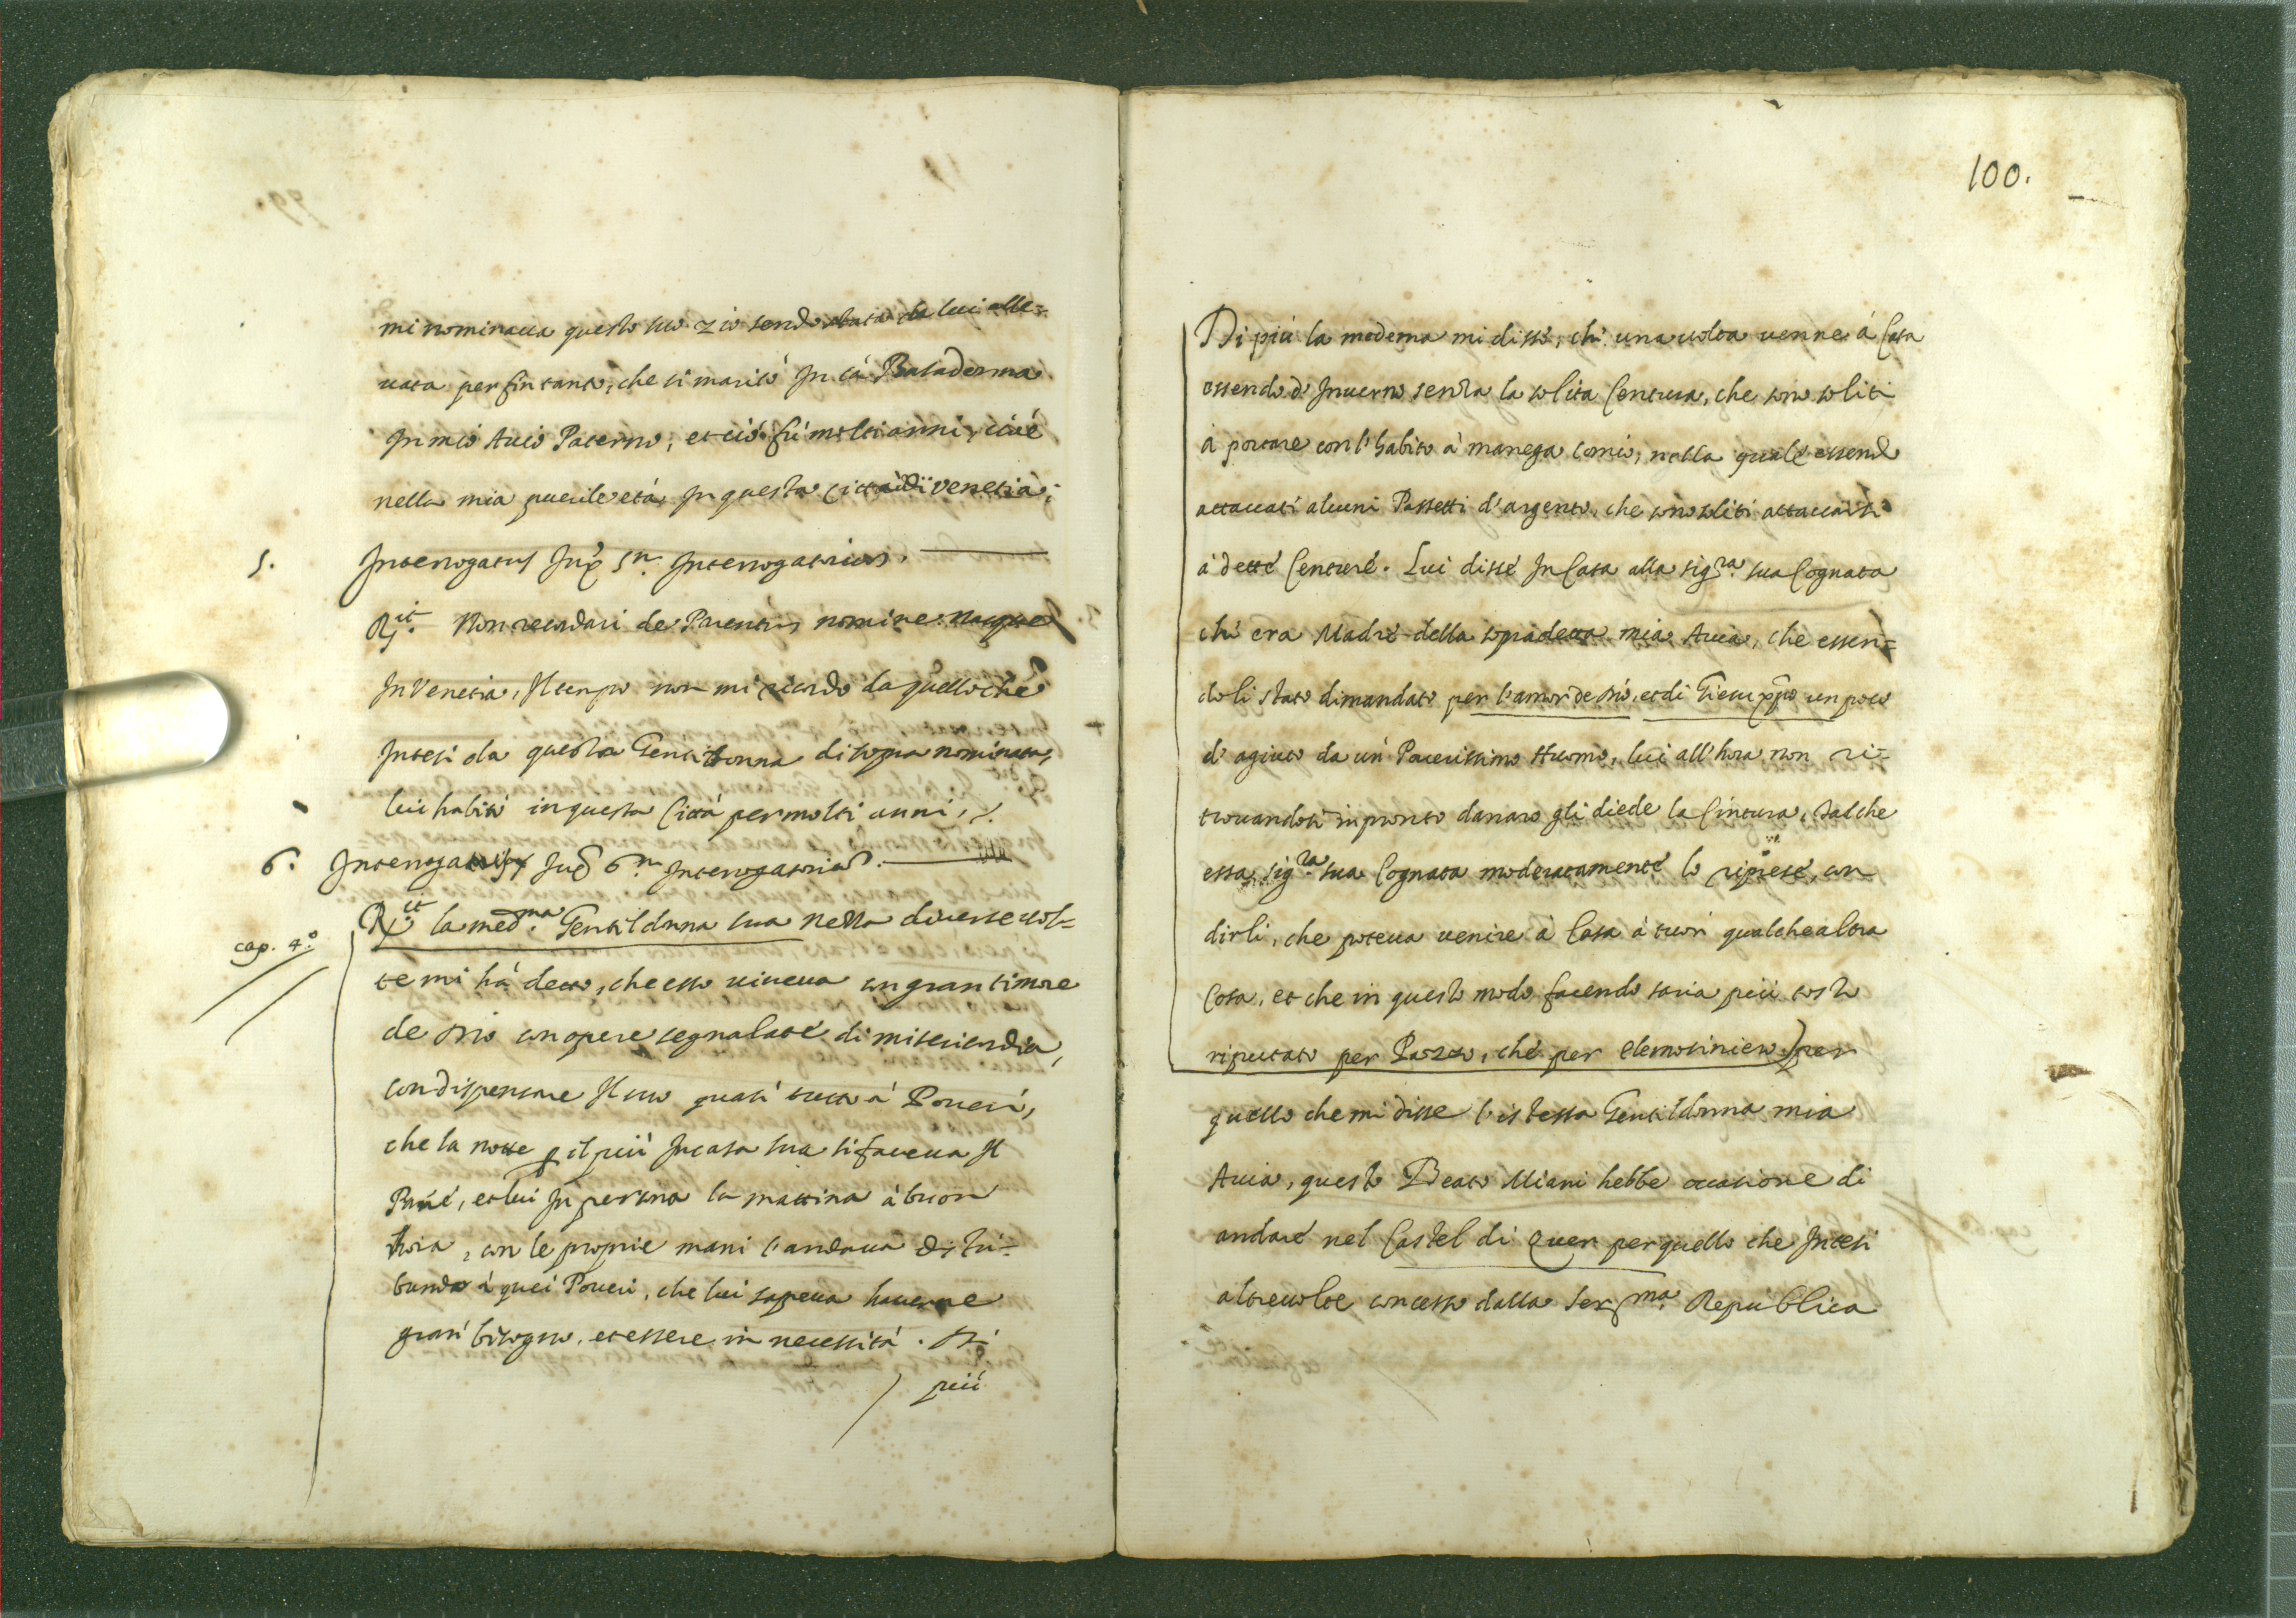 mi nominaua questo suo zio sendo stata da lui alle=
uata per fin tanto, che si maritò In cà Basadonna
In mio Auo Paterno, et ciò fù molti anni, cioè
nella mia puerile età In questa città di Venetia;
5. Interrogatus Iux 5.m Interrogatorium.
R.it Non recordari de Parentis nomine. nacque
In Venetia, Il tempo non mi ricordo da quello che
Intesi da questa Gentildonna di sopra nominata,
lui habitò in questa Città per molti anni,
6. Interrogatus Iux 6.m Interrogatorium.
cap. 4.o
R.it la med.ma Gentildonna sua Nezza diuerse uol=
te mi hà detto, che esso uiueua con gran timore
de Dio con opere segnalate di misericordia,
con dispensare Il suo quasi tutto à Poueri,
che la notte p il più In casa sua si faceua Il
Pane, et lui In persona la mattina à buon
hora, con le proprie mani l'andaua distri=
buendo à quei Poueri, che lui sapeua hauerne
gran bisogno, et essere in necessità. Di
più
100.
Di più la medema mi disse, che una uolta uenne à Casa
essendo d'Inuerno senza la solita Centura, che sono soliti
à portare con l'habito à manega comio, nella quale essendo
attaccati alcuni Passetti d'argento, che sono soliti attaccarsi
à dette Centure. Lui disse In Casa alla sig.ra sua Cognata
che era Madre della sopradetta mia Auia, che essen=
doli stato dimandato per l'amor de Dio, et di Giesu xpo un poco
d'agiuto da un Pouerissimo Huomo, lui all'hora non ri=
trouandosi in pronto danaro gli diede la Cintura, tal che
essa sig.ra sua Cognata moderatamente lo riprese, con
dirli, che poteua uenire à Casa à tuor qualche altra
Cosa, et che in questo modo facendo saria più tosto
riputato per Pazzo, che per elemosiniero) per
quello che mi disse l'istessa Gentildonna mia
Auia, questo Beato Miani hebbe occasione di
andare nel Castel di Quer per quello che Intesi
altre uolte concesso dalla Ser.ma Republica